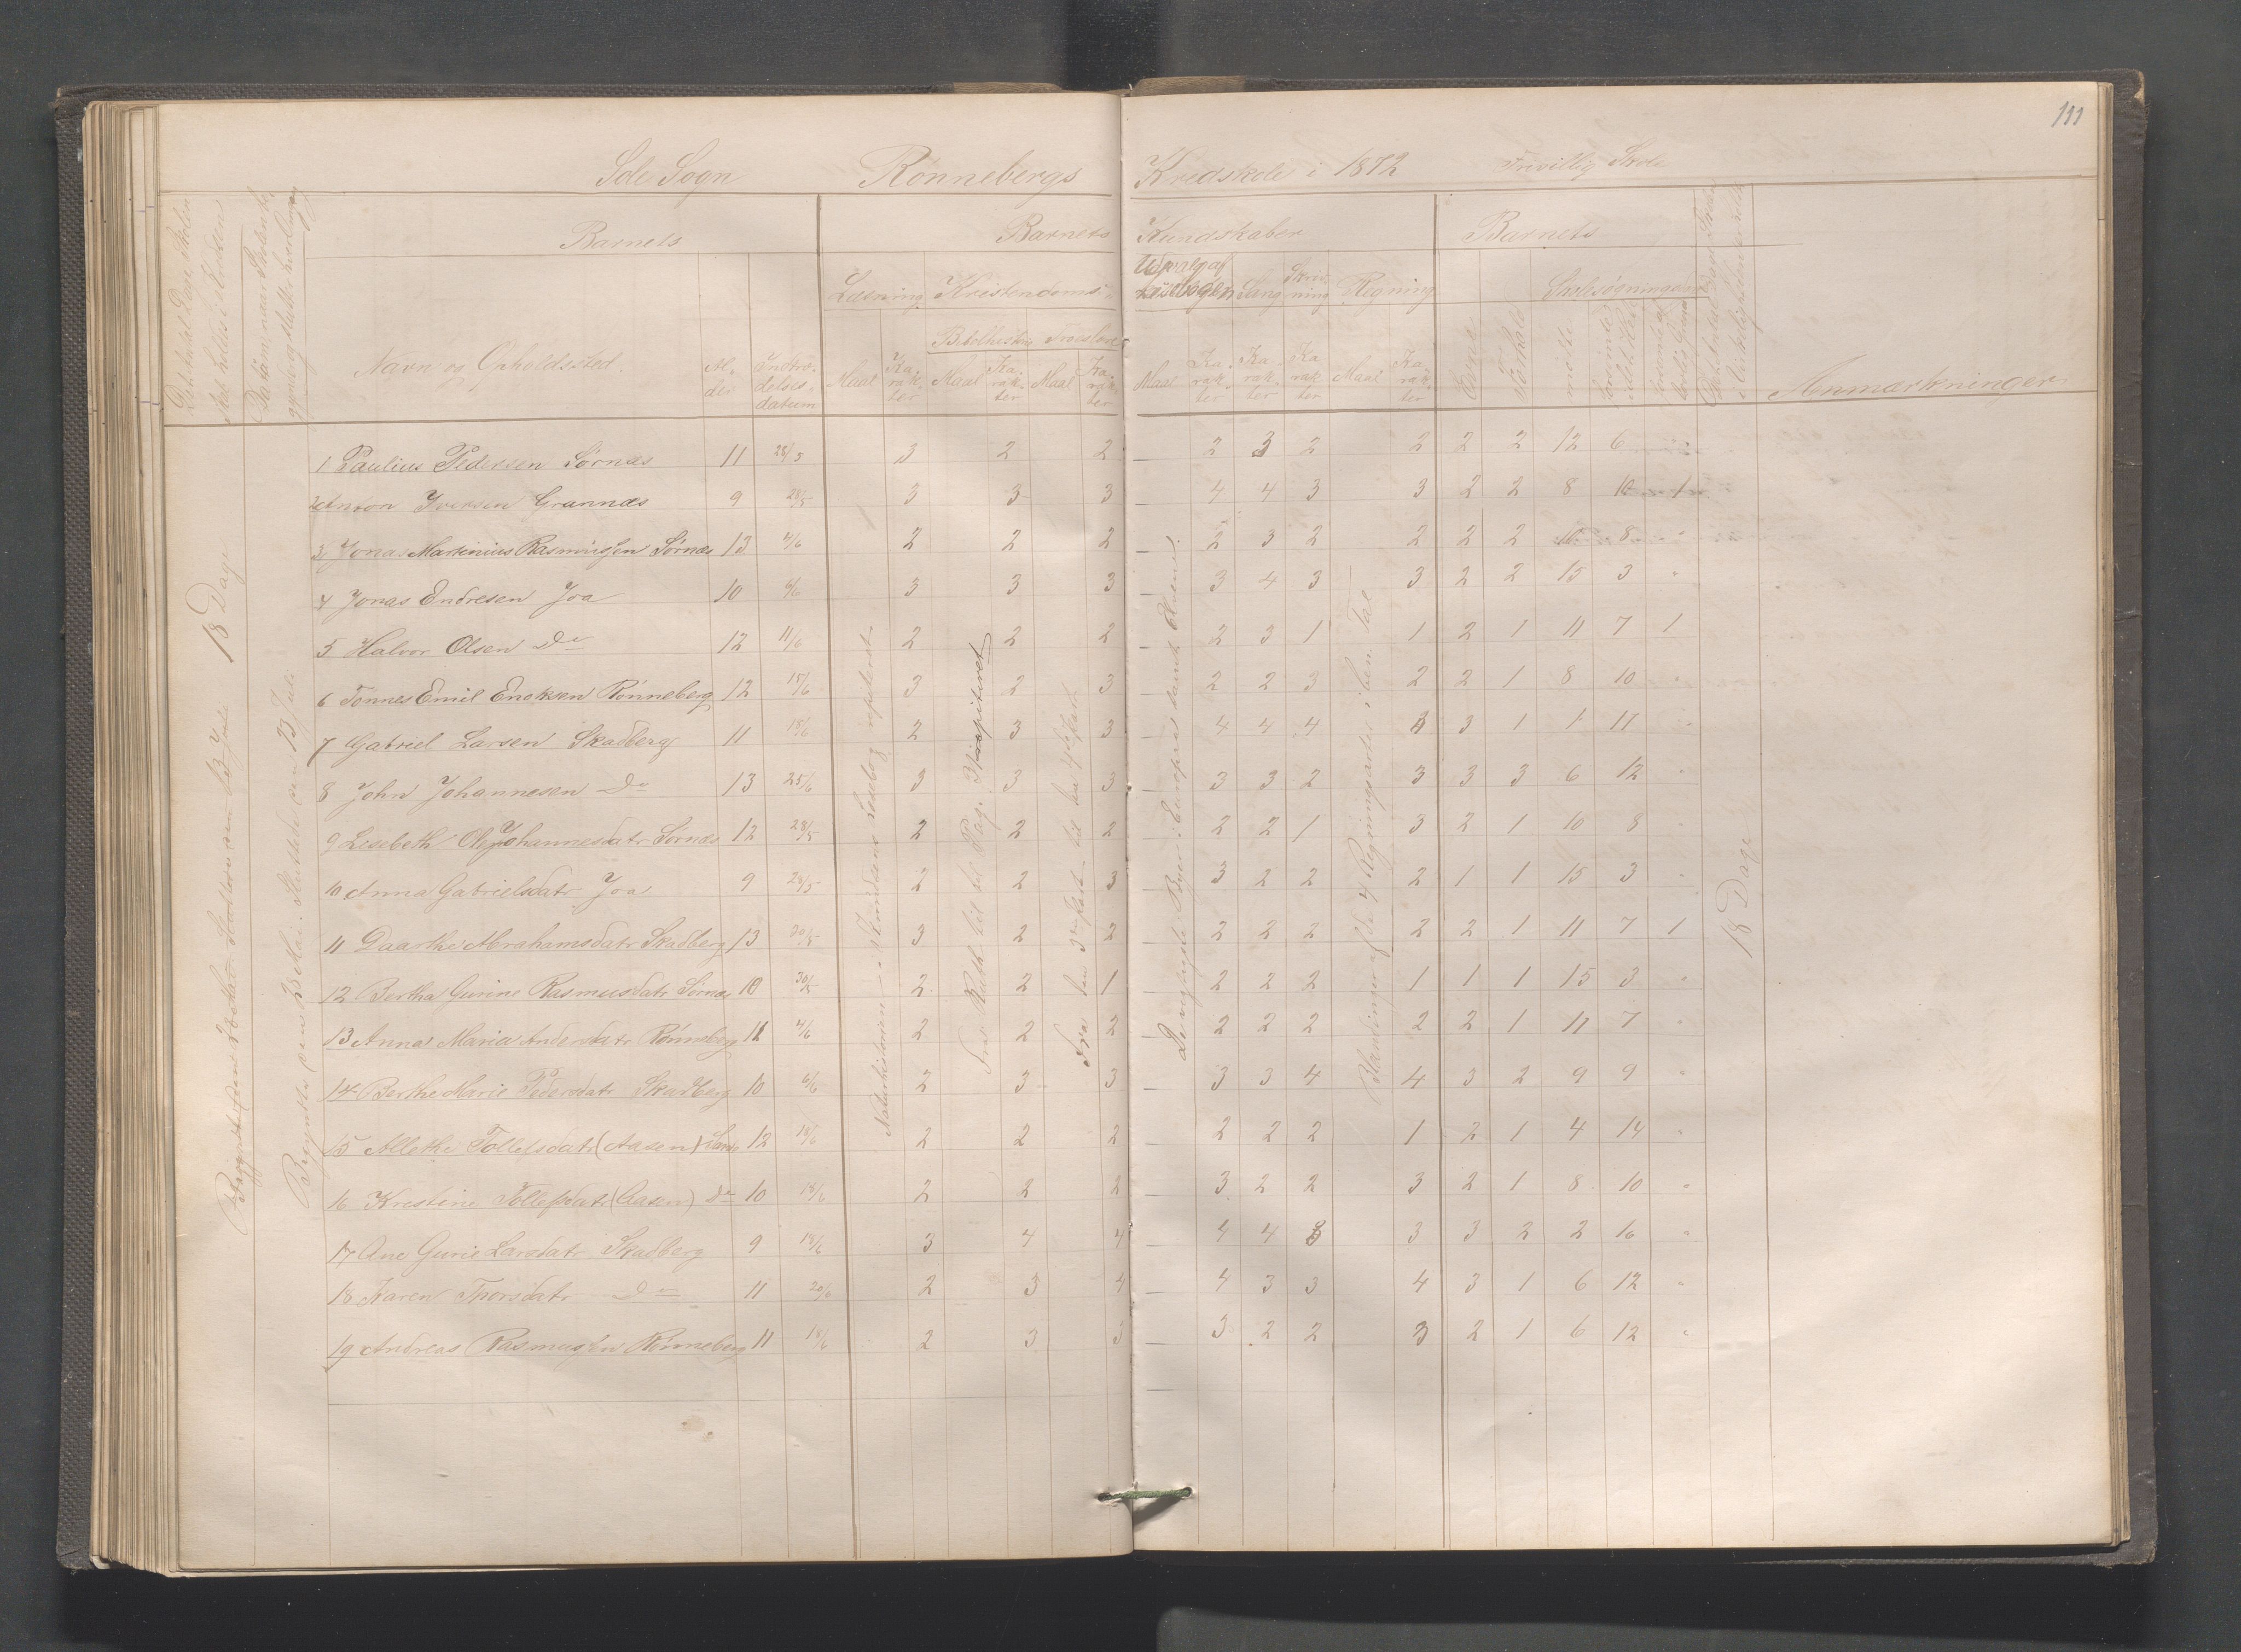 111
Sole Sogn Rønnebergs Kredskole i 1872 Frivillig Skole
Barnets Barnets Kundskaber Barnets
Læsning Kristendoms Udvalg af Læsebogen Sang Skrivning Regning Skolesøgning
Bibelhistorie Troeslære
Navn og Opholdssted. Alder Indtrædelses-datum Maal Karakter Maal Karakter Maal Karakter Maal Karakter Karakter Karakter Maal Karakter Evner Forhold mødte Anmærkninger
1 Paulius Pedersen Sørnæs 11 28/5 3 2 2 2 3 2 2 2 2 12 6 "
2 Anton Iversen Grannæs 9 28/5 3 3 3 4 4 3 3 2 2 8 10 1
3 Jonas Martinius Rasmussen Sørnæs 13 4/6 2 2 2 2 3 2 2 2 2 10 8 "
4 Jonas Endresen Joa 10 6/6 3 3 3 3 4 3 3 2 2 15 3 "
5 Halvor Olsen Do 12 11/6 2 2 2 2 3 1 1 2 1 11 7 1
6 Tønnes Emil Enoksen Rønneberg 12 15/6 3 2 3 2 2 3 2 2 1 8 10 "
7 Gabriel Larsen Skadberg 11 18/6 2 3 3 4 4 4 3 3 1 1 11 "
8 John Johannesen Do 13 25/6 3 3 3 3 3 2 3 3 3 6 12 "
9 Lisebeth Ole Johannesdatr Sørnæs 12 28/5 2 2 2 2 2 1 3 2 1 10 8 "
10 Anna Gabrielsdatr Joa 9 28/5 2 2 3 3 2 2 2 1 1 15 3 "
11 Daarthe Abrahamsdatr Skadberg 13 30/5 3 2 2 2 2 2 2 2 1 11 7 1
12 Bertha Gurine Rasmusdatr Sørnæs 10 30/5 2 2 1 2 2 2 1 1 1 15 3 "
13 Anna Maria Andersdatr Rønneberg 11 4/6 2 2 2 2 2 2 2 2 1 11 7 "
14 Berthe Marie Pedersdatr Skadberg 10 6/6 2 3 3 3 3 4 4 3 2 9 9 "
15 Allethe Tollefsdatr (Aasen) 12 18/6 2 2 2 2 2 2 1 2 1 4 14 "
16 Kristine Tollefsdatr (Aasen) Do 10 18/6 2 2 2 3 2 2 3 2 1 8 10 "
17 Ane Gurie Larsdatr Skadberg 9 18/6 3 4 4 4 4 3 3 3 2 2 16 "
18 Karen Thorsdatr Do 11 20/6 2 3 4 4 3 3 4 3 1 6 12 "
19 Andreas Rasmussen Rønneberg 11 18/6 2 3 3 3 2 2 3 2 1 6 12 "
18 Dage
Begyndte den 28 Mai. Sluttede den 13 Juli
Naturhistorien i Jensens Læsebog repeteret
Fra Ruth til til Pag. 31 repiteret
Fra den 3die Part til den 4de Part
De vigtigste Byer i Europas samt Elvene.
Blandinger af de 4 Regningsarter i ben. Tal
18 Dage